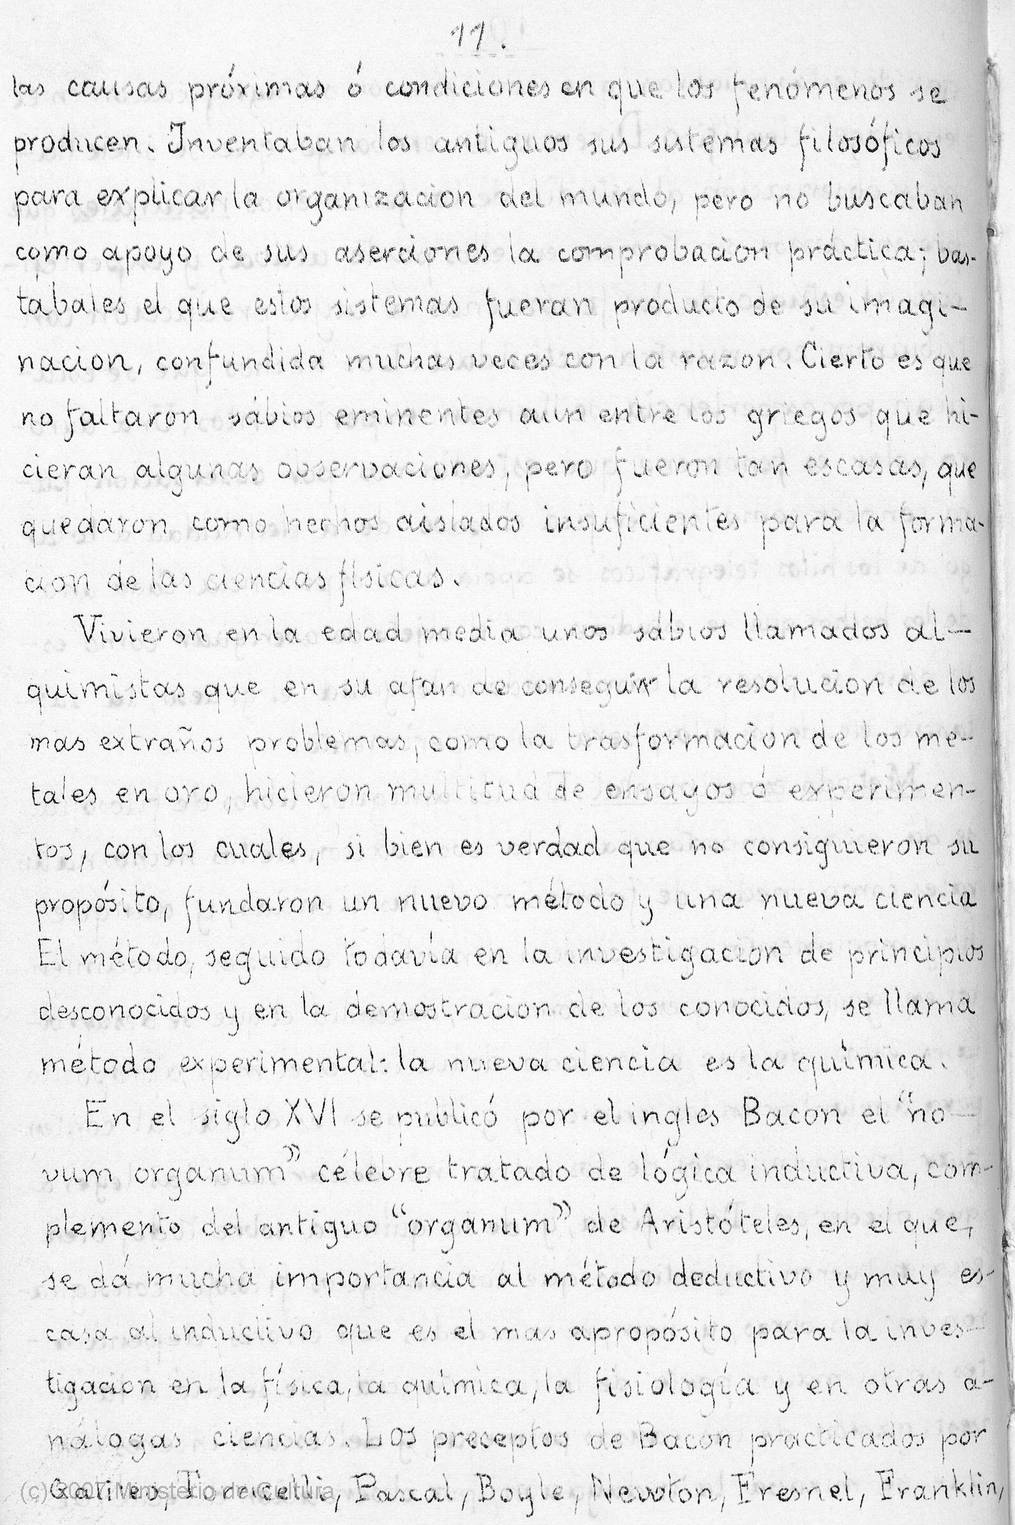 11.
las causas próximas ó condiciones en que los fenómenos se
producen. Inventaban los antiguos sus sistemas filosóficos
para explicar la organizacion del mundo, pero no buscaban
como apoyo de sus aserciones la comprobacion práctica; bas-
tábales el que estos sistemas fueran producto de su imagi-
nacion, confundida muchas veces con la razon. Cierto es que
no faltaron sábios eminentes aun entre los griegos que hi-
cieran algunas observaciones, pero fueron tan escasas, que
quedaron como hechos aislados insuficientes para la forma-
cion de las ciencias físicas.
Vivieron en la edad media unos sábios llamados al-
quimistas que en su afan de conseguir la resolucion de los
mas extraños problemas, como la trasformacion de los me-
tales en oro, hicieron multitud de ensayos ó experimen-
tos, con los cuales, si bien es verdad que no consiguieron su
propósito, fundaron un nuevo método y una nueva ciencia
El método, seguido todavía en la investigacion de principios
desconocidos y en la demostracion de los conocidos, se llama
método experimental: la nueva ciencia es la química.
En el siglo XVI se publicó por el ingles Bacon el "no-
vum organum" célebre tratado de lógica inductiva, com-
plemento del antiguo "organum" de Aristóteles, en el que,
se dá mucha importancia al método deductivo y muy es-
casa al inductivo que es el mas apropósito para la inves-
tigacion en la física, la química, la fisiología y en otras a-
nálogas ciencias. Los preceptos de Bacon practicados por
Galileo, Torricelli, Pascal, Boyle, Newton, Fresnel, Franklin,
(c) 2007 Ministerio de Cultura